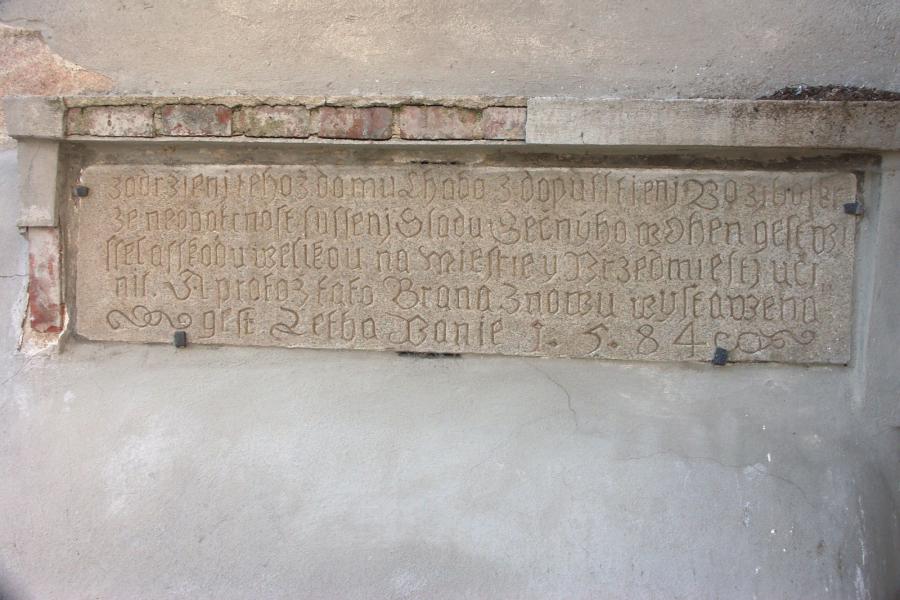 zadrzienj tehoz domu Chodo z dopusstienj Bozihoske
ze neopatrnost sussenj Sladu Gecnýho wohen gest wi
ssel a sskodu welikou na Miestie y Przedmiestj uči
nil. A protoz tato Brana Znowu wystawena
gest. Letha Panie 1. 5. 84